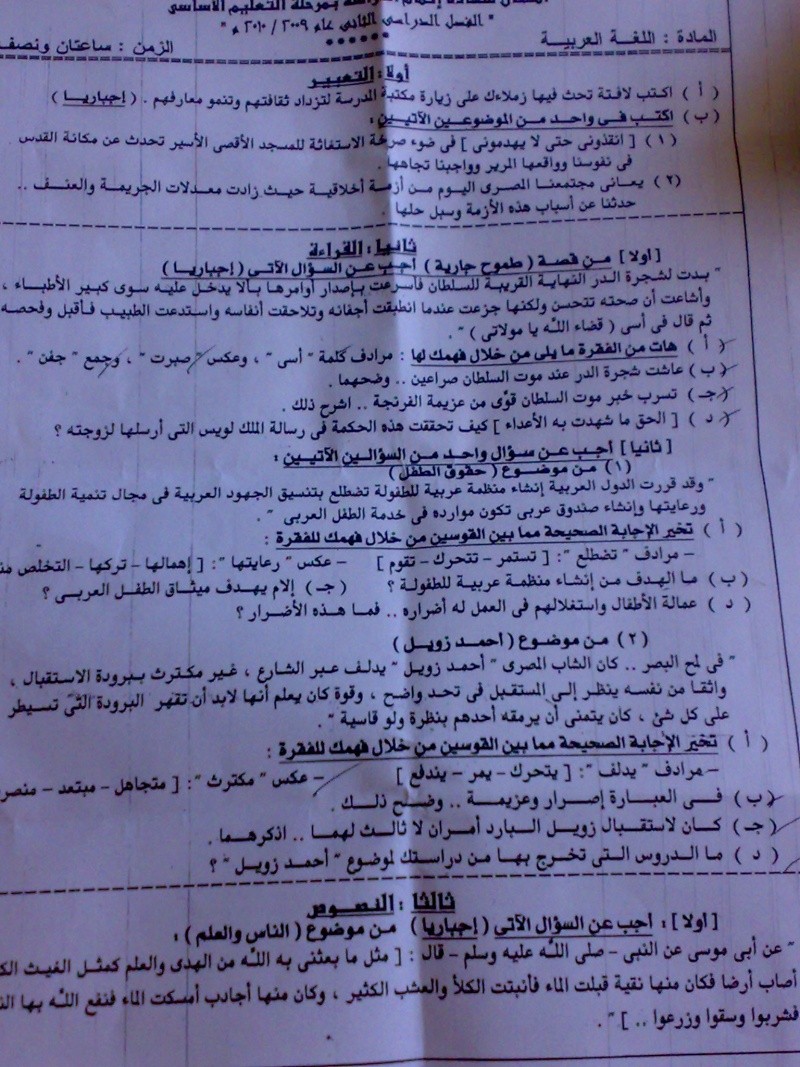 بمرحلة التعليم الأساسى
" الفصل الدراسى الثانى عام ٢٠٠٩ / ٢٠١٠ م "
المادة : اللغة العربية ●●●●●● الزمن : ساعتان ونصف
أولا : التعبير
( أ ) اكتب لافتة تحث فيها زملاءك على زيارة مكتبة المدرسة لتزداد ثقافتهم وتنمو معارفهم . ( إجباريا )
( ب ) اكتب فى واحد من الموضوعين الآتيين :
( ١ ) [ انقذونى حتى لا يهدمونى ] فى ضوء صرخة الاستغاثة للمسجد الأقصى الأسير تحدث عن مكانة القدس
فى نفوسنا وواقعها المرير وواجبنا تجاهها .
( ٢ ) يعانى مجتمعنا المصرى اليوم من أزمة أخلاقية حيث زادت معدلات الجريمة والعنف ..
حدثنا عن أسباب هذه الأزمة وسبل حلها .
ثانيا : القراءة
[ اولا ] من قصة ( طموح جارية ) أجب عن السؤال الآتى ( إجباريا )
" بدت لشجرة الدر النهاية القريبة للسلطان فأسرعت بإصدار أوامرها بألا يدخل عليه سوى كبير الأطباء ،
وأشاعت أن صحته تتحسن ولكنها جزعت عندما انطبقت أجفانه وتلاحقت أنفاسه واستدعت الطبيب فأقبل وفحصه
ثم قال فى أسى ( قضاء الله يا مولاتى ) " .
( أ ) هات من الفقرة ما يلى من خلال فهمك لها : مرادف كلمة " أسى " ، وعكس " صبرت " ، وجمع " جفن " .
( ب ) عاشت شجرة الدر عند موت السلطان صراعين .. وضحهما .
( جـ ) تسرب خبر موت السلطان قوّى من عزيمة الفرنجة .. اشرح ذلك .
( د ) [ الحق ما شهدت به الأعداء ] كيف تحققت هذه الحكمة فى رسالة الملك لويس التى أرسلها لزوجته ؟
[ ثانيا ] أجب عن سؤال واحد من السؤالين الآتيين :
( ١ ) من موضوع ( حقوق الطفل )
" وقد قررت الدول العربية إنشاء منظمة عربية للطفولة تضطلع بتنسيق الجهود العربية فى مجال تنمية الطفولة
ورعايتها وإنشاء صندوق عربى تكون موارده فى خدمة الطفل العربى " .
( أ ) تخير الإجابة الصحيحة مما بين القوسين من خلال فهمك للفقرة :
– مرادف " تضطلع " : [ تستمر – تتحرك – تقوم ] – عكس " رعايتها " : [ إهمالها – تركها – التخلص
( ب ) ما الهدف من إنشاء منظمة عربية للطفولة ؟ ( جـ ) إلام يهدف ميثاق الطفل العربى ؟
( د ) عمالة الأطفال واستغلالهم فى العمل له أضراره .. فما هذه الأضرار ؟
( ٢ ) من موضوع ( أحمد زويل )
" فى لمح البصر .. كان الشاب المصرى " أحمد زويل " يدلف عبر الشارع ، غير مكترث ببرودة الاستقبال ،
واثقا من نفسه ينظر إلى المستقبل فى تحد واضح ، وقوة كان يعلم أنها لابد أن تقهر البرودة التى تسيطر
على كل شئ ، كان يتمنى أن يرمقه أحدهم بنظرة ولو قاسية " .
( أ ) تخير الإجابة الصحيحة مما بين القوسين من خلال فهمك للفقرة :
– مرادف " يدلف " : [ يتحرك – يمر – يندفع ] – عكس " مكترث " : [ متجاهل – مبتعد –
( ب ) فى العبارة إصرار وعزيمة .. وضح ذلك .
( جـ ) كان لاستقبال زويل البارد أمران لا ثالث لهما .. اذكرهما .
( د ) ما الدروس التى تخرج بها من دراستك لموضوع " أحمد زويل " ؟
ثالثا : النصوص
[ اولا ] : أجب عن السؤال الآتى ( إجباريا ) من موضوع ( الناس والعلم ) :
" عن أبى موسى عن النبى – صلى الله عليه وسلم – قال : [ مثل ما بعثنى به الله من الهدى والعلم كمثل الغيث
أصاب أرضا فكان منها نقية قبلت الماء فأنبتت الكلأ والعشب الكثير ، وكان منها أجادب أمسكت الماء فنفع الله بها
فشربوا وسقوا وزرعوا .. ] " .